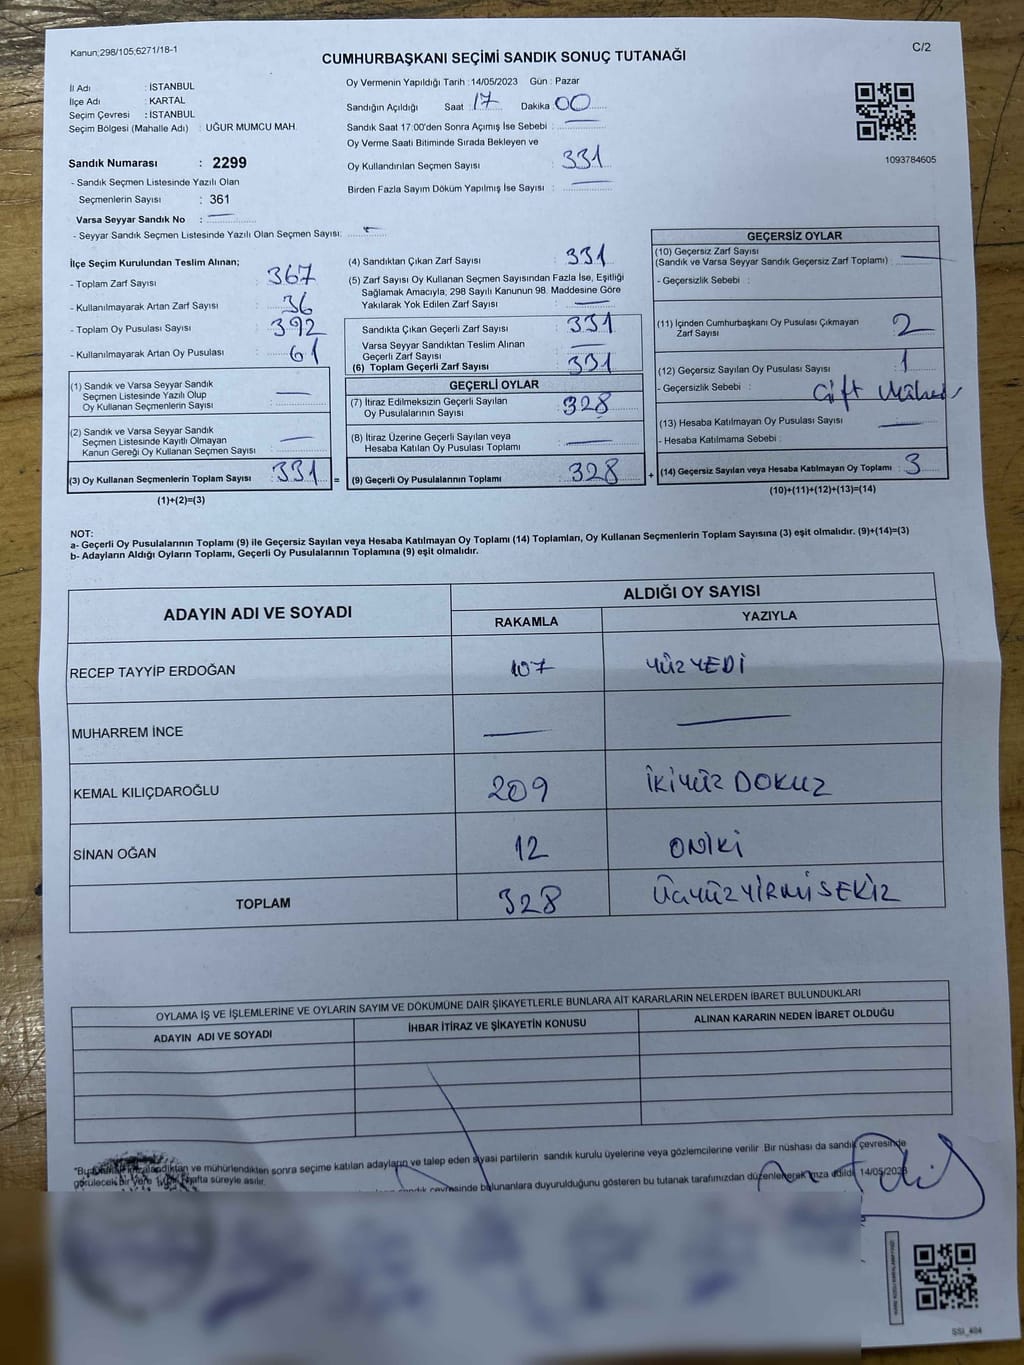 Kanun;298/105,6271/18-1
C/2
CUMHURBAŞKANI SEÇİMİ SANDIK SONUÇ TUTANAĞI
İl Adı : İSTANBUL
İlçe Adı : KARTAL
Seçim Çevresi : İSTANBUL
Seçim Bölgesi (Mahalle Adı) : UĞUR MUMCU MAH.
Sandık Numarası : 2299
- Sandık Seçmen Listesinde Yazılı Olan
Seçmenlerin Sayısı : 361
Varsa Seyyar Sandık No :
- Seyyar Sandık Seçmen Listesinde Yazılı Olan Seçmen Sayısı:
Oy Vermenin Yapıldığı Tarih : 14/05/2023 Gün : Pazar
Sandığın Açıldığı Saat : 17 Dakika 00
Sandık Saat 17:00'den Sonra Açımış İse Sebebi :
Oy Verme Saati Bitiminde Sırada Bekleyen ve
Oy Kullandırılan Seçmen Sayısı 331
Birden Fazla Sayım Döküm Yapılmış İse Sayısı :
1093784605
İlçe Seçim Kurulundan Teslim Alınan;
- Toplam Zarf Sayısı 367
- Kullanılmayarak Artan Zarf Sayısı 36
- Toplam Oy Pusulası Sayısı 392
- Kullanılmayarak Artan Oy Pusulası 61
(1) Sandık ve Varsa Seyyar Sandık
Seçmen Listesinde Yazılı Olup
Oy Kullanan Seçmenlerin Sayısı
(2) Sandık ve Varsa Seyyar Sandık
Seçmen Listesinde Kayıtlı Olmayan
Kanun Gereği Oy Kullanan Seçmen Sayısı
(3) Oy Kullanan Seçmenlerin Toplam Sayısı : 331 =
(1)+(2)=(3)
(4) Sandıktan Çıkan Zarf Sayısı 331
(5) Zarf Sayısı Oy Kullanan Seçmen Sayısından Fazla İse, Eşitliği
Sağlamak Amacıyla; 298 Sayılı Kanunun 98. Maddesine Göre
Yakılarak Yok Edilen Zarf Sayısı
Sandıkta Çıkan Geçerli Zarf Sayısı : 331
Varsa Seyyar Sandıktan Teslim Alınan
Geçerli Zarf Sayısı
(6) Toplam Geçerli Zarf Sayısı : 331
GEÇERLİ OYLAR
(7) İtiraz Edilmeksizin Geçerli Sayılan
Oy Pusulalarının Sayısı : 328
(8) İtiraz Üzerine Geçerli Sayılan veya
Hesaba Katılan Oy Pusulası Toplamı
(9) Geçerli Oy Pusulalarının Toplamı : 328 +
GEÇERSİZ OYLAR
(10) Geçersiz Zarf Sayısı
(Sandık ve Varsa Seyyar Sandık Geçersiz Zarf Toplamı) :
- Geçersizlik Sebebi :
(11) İçinden Cumhurbaşkanı Oy Pusulası Çıkmayan
Zarf Sayısı : 2
(12) Geçersiz Sayılan Oy Pusulası Sayısı : 1
- Geçersizlik Sebebi : Çift
(13) Hesaba Katılmayan Oy Pusulası Sayısı :
- Hesaba Katılmama Sebebi :
(14) Geçersiz Sayılan veya Hesaba Katılmayan Oy Toplamı : 3
(10)+(11)+(12)+(13)=(14)
NOT:
a- Geçerli Oy Pusulalarının Toplamı (9) ile Geçersiz Sayılan veya Hesaba Katılmayan Oy Toplamı (14) Toplamları, Oy Kullanan Seçmenlerin Toplam Sayısına (3) eşit olmalıdır. (9)+(14)=(3)
b- Adayların Aldığı Oyların Toplamı, Geçerli Oy Pusulalarının Toplamına (9) eşit olmalıdır.
ADAYIN ADI VE SOYADI
ALDIĞI OY SAYISI
RAKAMLA YAZIYLA
RECEP TAYYİP ERDOĞAN 107 YÜZ YEDİ
MUHARREM İNCE
KEMAL KILIÇDAROĞLU 209 İKİYÜZ DOKUZ
SİNAN OĞAN 12 ONİKİ
TOPLAM 328 ÜÇYÜZYİRMİSEKİZ
OYLAMA İŞ VE İŞLEMLERİNE VE OYLARIN SAYIM VE DÖKÜMÜNE DAİR ŞİKAYETLERLE BUNLARA AİT KARARLARIN NELERDEN İBARET BULUNDUKLARI
ADAYIN ADI VE SOYADI İHBAR İTİRAZ VE ŞİKAYETİN KONUSU ALINAN KARARIN NEDEN İBARET OLDUĞU
imzalandıktan ve mühürlendikten sonra seçime katılan adayların ve talep eden siyasi partilerin sandık kurulu üyelerine veya gözlemcilerine verilir Bir nüshası da sandık çevresinde
görülecek bir yere hafta süreyle asılır.
sandık çevresinde bulunanlara duyurulduğunu gösteren bu tutanak tarafımızdan düzenlenerek imza edildi. 14/05/2023
SSI_404